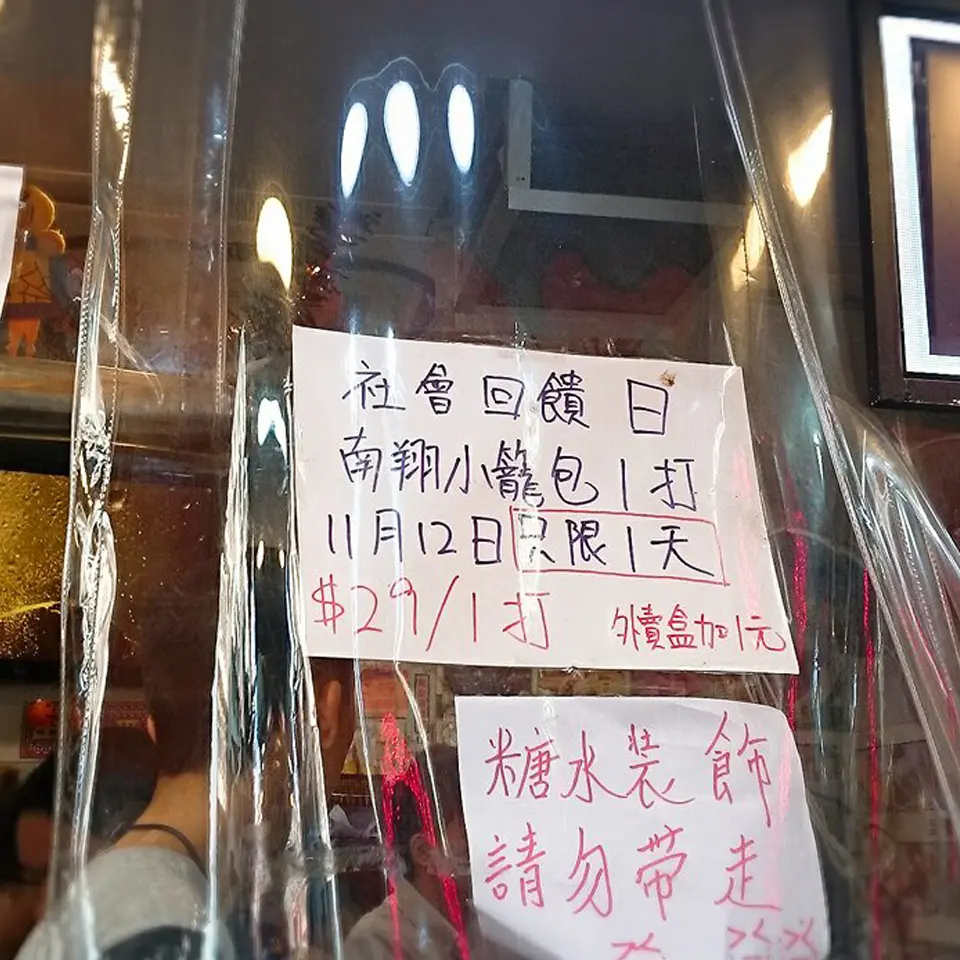 社會回饋日
南翔小籠包1打
11月12日只限1天
$29/1打 外賣盒加1元
糖水装飾
請勿带走